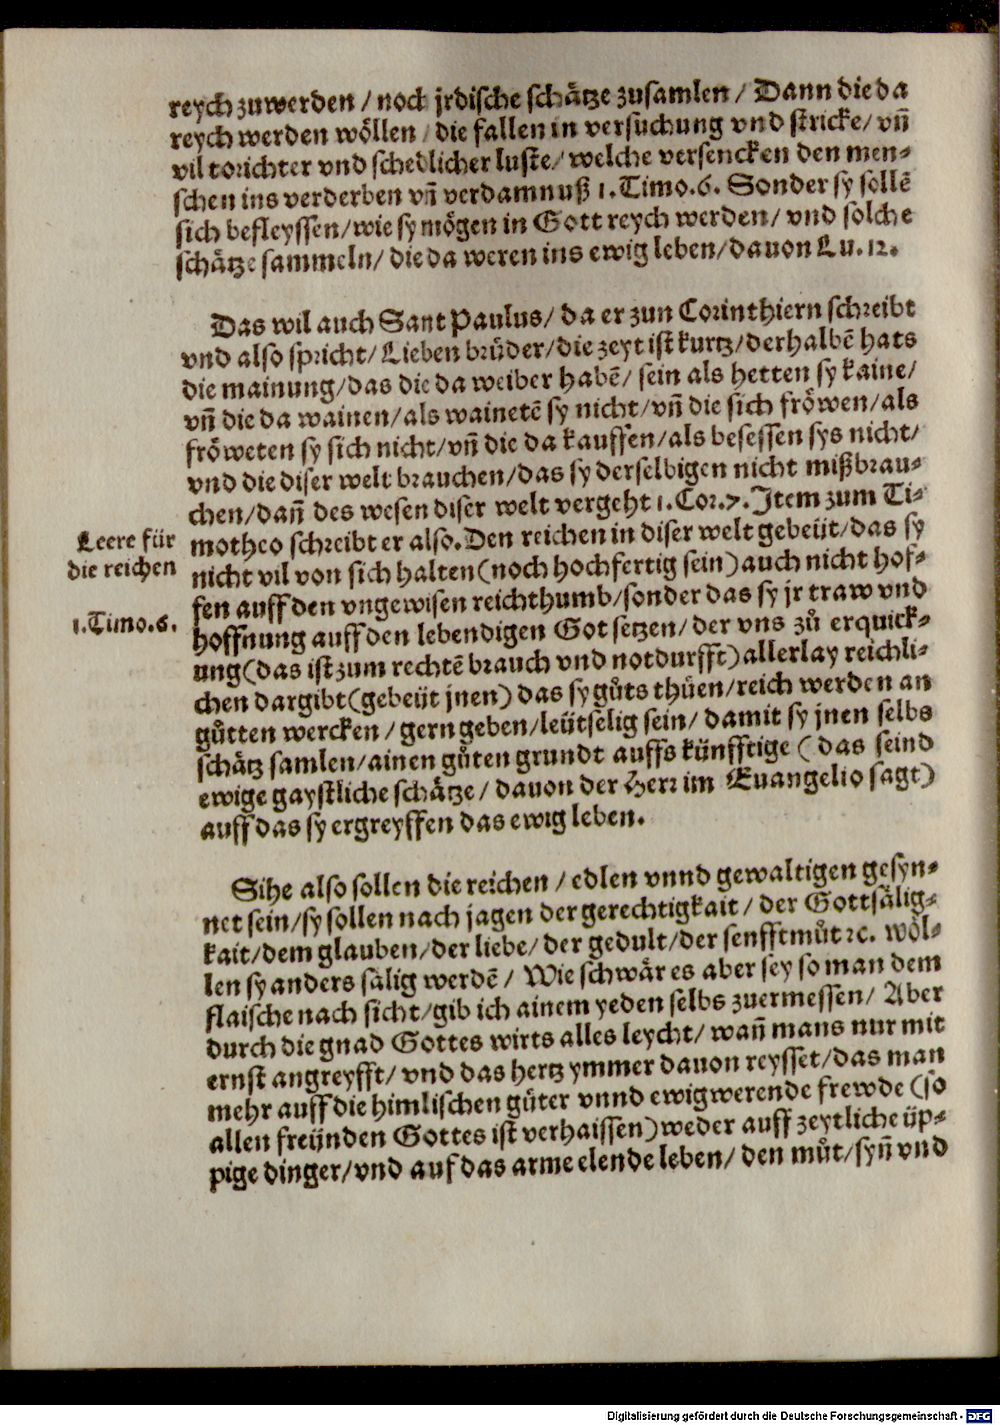 reych zuwerden / noch jrdische schätze zusamlen / Dann die da
reych werden wöllen / die fallen in versuchung vnd stricke / vñ
vil torichter vnd schedlicher luste / welche versencken den men⸗
schen ins verderben vñ verdamnuß 1. Timo. 6. Sonder sy sollē
sich befleyssen / wie sy mögen in Gott reych werden / vnd solche
schätze sammeln / die da weren ins ewig leben / dauon Lu. 12.
Das wil auch Sant Paulus / da er zun Corinthiern schreibt
vnd also spricht / Lieben brüder / die zeyt ist kurtz / derhalbē hats
die mainung / das die da weiber habē / sein als hetten sy kaine /
vñ die da wainen / als wainetē sy nicht / vñ die sich fröwen / als
fröweten sy sich nicht / vñ die da kauffen / als besessen sys nicht /
vnd die diser welt brauchen / das sy derselbigen nicht mißbrau⸗
chen / dañ des wesen diser welt vergeht 1. Cor. 7. Item zum Ti⸗
Leere für
die reichen
motheo schreibt er also. Den reichen in diser welt gebeüt / das sy
nicht vil von sich halten (noch hochfertig sein) auch nicht hof⸗
fen auff den vngewisen reichthumb / sonder das sy jr traw vnd
1. Timo. 6.
hoffnung auff den lebendigen Got setzen / der vns zů erquick⸗
ung (das ist zum rechtē brauch vnd notdurfft) allerlay reichli⸗
chen dargibt (gebeüt jnen) das sy gůts thüen / reich werden an
gůtten wercken / gern geben / leütselig sein / damit sy jnen selbs
schätz samlen / ainen gůten grundt auffs künfftige (das seind
ewige gaystliche schätze / dauon der Herr im Euangelio sagt)
auff das sy ergreyffen das ewig leben.
Sihe also sollen die reichen / edlen vnnd gewaltigen gesyn⸗
net sein / sy sollen nach jagen der gerechtigkait / der Gottsälig⸗
kait / dem glauben / der liebe / der gedult / der senfftmůt ꝛc. wöl⸗
len sy anders sälig werdē / Wie schwär es aber sey so man dem
flaische nach sicht / gib ich ainem yeden selbs zuermessen / Aber
durch die gnad Gottes wirts alles leycht / wañ mans nur mit
ernst angreyfft / vnd das hertz ymmer dauon reysset / das man
mehr auff die himlischen güter vnnd ewigwerende frewde (so
allen freünden Gottes ist verhaissen) weder auff zeytliche üp⸗
pige dinger / vnd auf das arme elende leben / den můt / syñ vnd
Digitalisierung gefördert durch die Deutsche Forschungsgemeinschaft - DFG